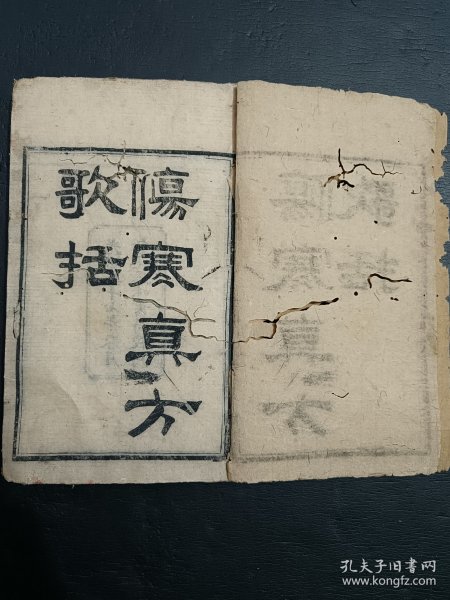 傷寒真方
歌括
孔夫子旧书网
www.kongfz.com